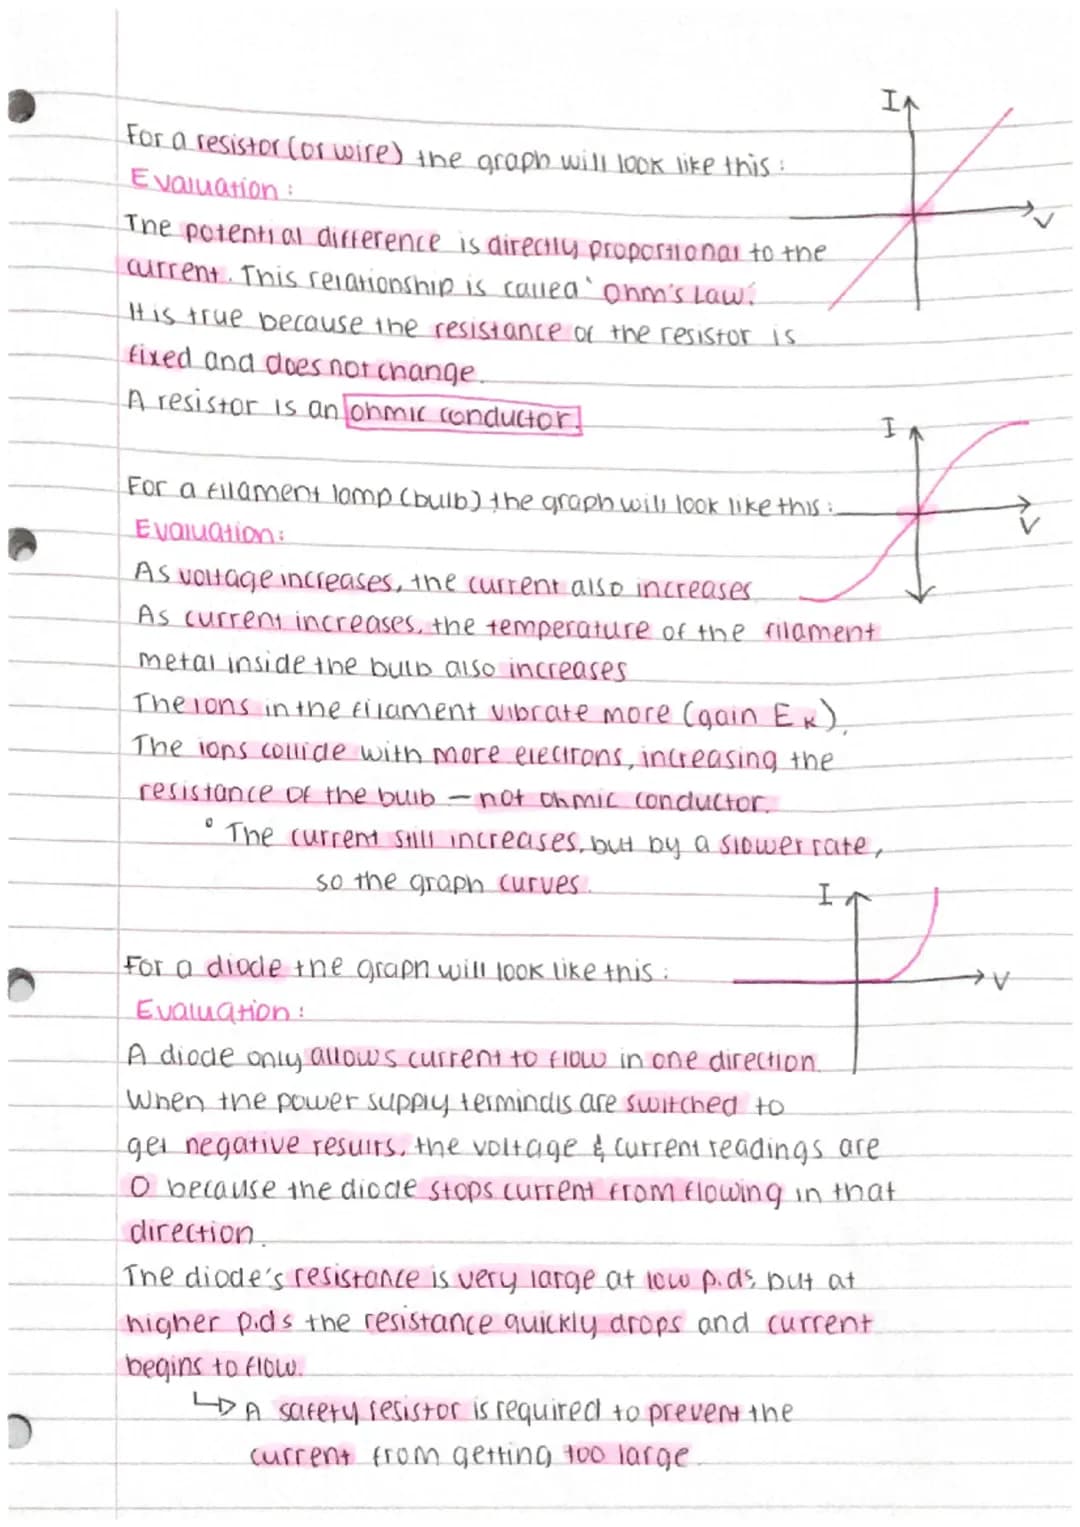 I
For a resistor (or wire) the graph will look like this :
Evaluation :
V
The potential difference is directly proportional to the
current. This relationship is called 'Ohm's Law'.
It is true because the resistance of the resistor is
fixed and does not change.
A resistor is an ohmic conductor.
I
For a filament lamp (bulb) the graph will look like this :
V
Evaluation:
As voltage increases, the current also increases
As current increases, the temperature of the filament
metal inside the bulb also increases
The ions in the filament vibrate more (gain Ek).
The ions collide with more electrons, increasing the
resistance of the bulb – not ohmic conductor.
° The current still increases, but by a slower rate,
so the graph curves.
I
For a diode the graph will look like this :
V
Evaluation :
A diode only allows current to flow in one direction.
When the power supply terminals are switched to
get negative results, the voltage & current readings are
0 because the diode stops current from flowing in that
direction.
The diode's resistance is very large at low p.ds, but at
higher p.ds the resistance quickly drops and current
begins to flow.
↳ A safety resistor is required to prevent the
current from getting too large.